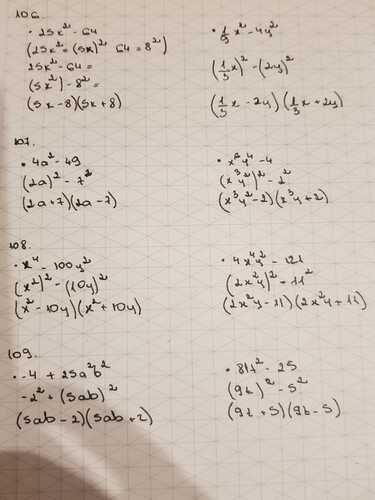 106.
• 25k² - 64
(25k² = (5k)² 64 = 8²)
25k² - 64 =
(5k²) - 8² =
(5k - 8)(5k + 8)
• 1/9 x² - 4y²
(1/3 x)² - (2y)²
(1/3 x - 2y)(1/3 x + 2y)
107.
• 4a² - 49
(2a)² - 7²
(2a + 7)(2a - 7)
• x⁶y⁴ - 4
(x³y²)² - 2²
(x³y² - 2)(x³y + 2)
108.
• x⁴ - 100y²
(x²)² - (10y)²
(x² - 10y)(x² + 10y)
• 4x⁴y² - 121
(2x²y)² - 11²
(2x²y - 11)(2x²y + 11)
109.
• -4 + 25a²b²
-2² + (5ab)²
(5ab - 2)(5ab + 2)
• 81t² - 25
(9t)² - 5²
(9t + 5)(9t - 5)